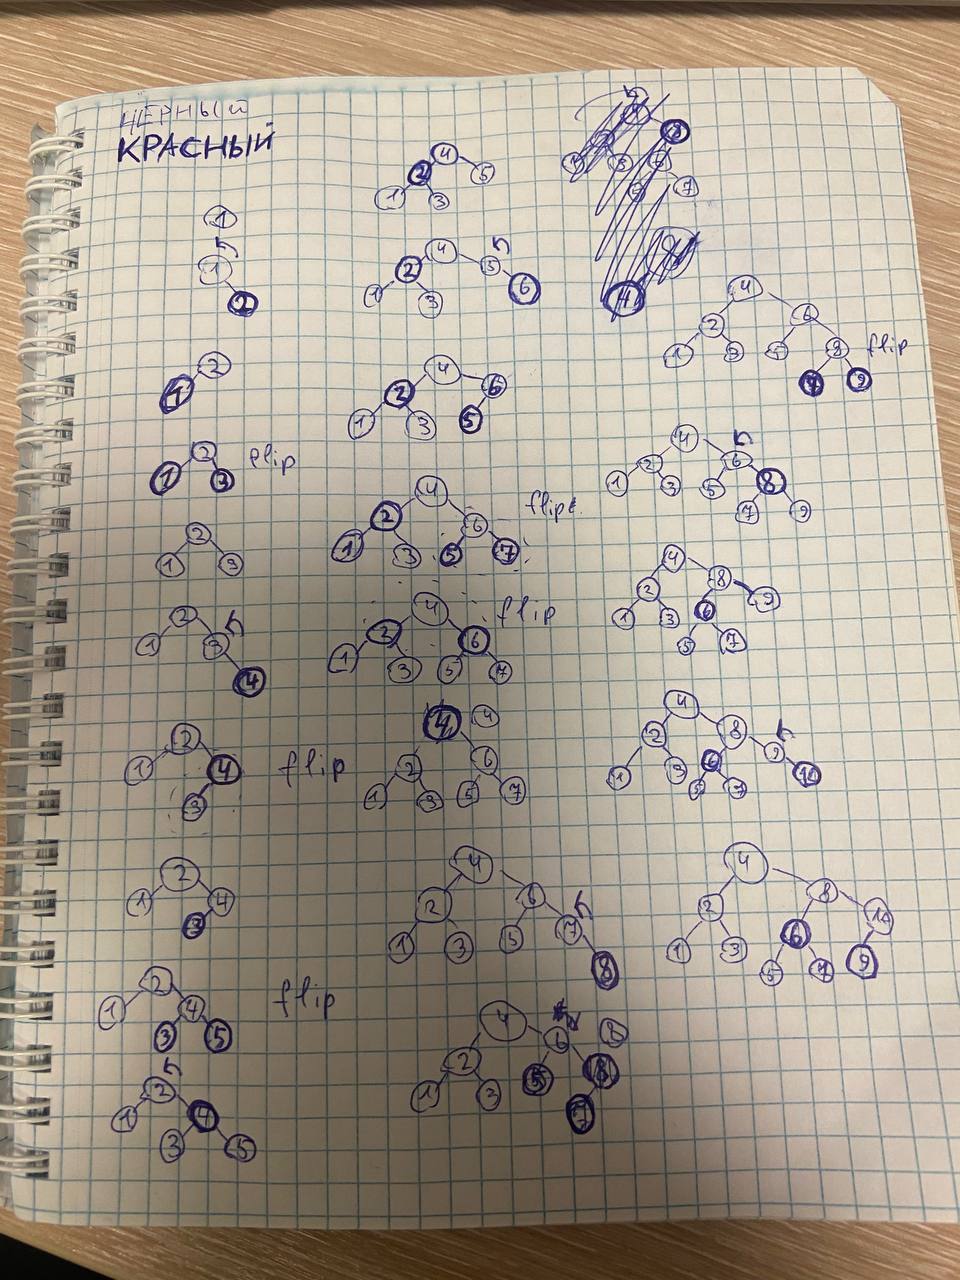 ЧЕРНЫЙ
КРАСНЫЙ
1
1
2
2
1
2
1 3 flip
2
1 3
2
1 3
4
2
1 4 flip
3
2
1 4
3
2
1 4 flip
3 5
2
1 4
3 5
4
2 5
1 3
4
2 5
1 3 6
4
2 6
1 3 5
4
2 6 flip
1 3 5 7
4
2 6 flip
1 3 5 7
4 4
2 6
1 3 5 7
4
2 6
1 3 5 7
8
4
2 6 8
1 3 5 8
7
4
2 6
1 3 5 8 flip
7 9
4
2 6
1 3 5 8
7 9
4
2 8
1 3 6 9
5 7
4
2 8
1 3 6 9
5 7 10
4
2 8
1 3 6 10
5 7 9